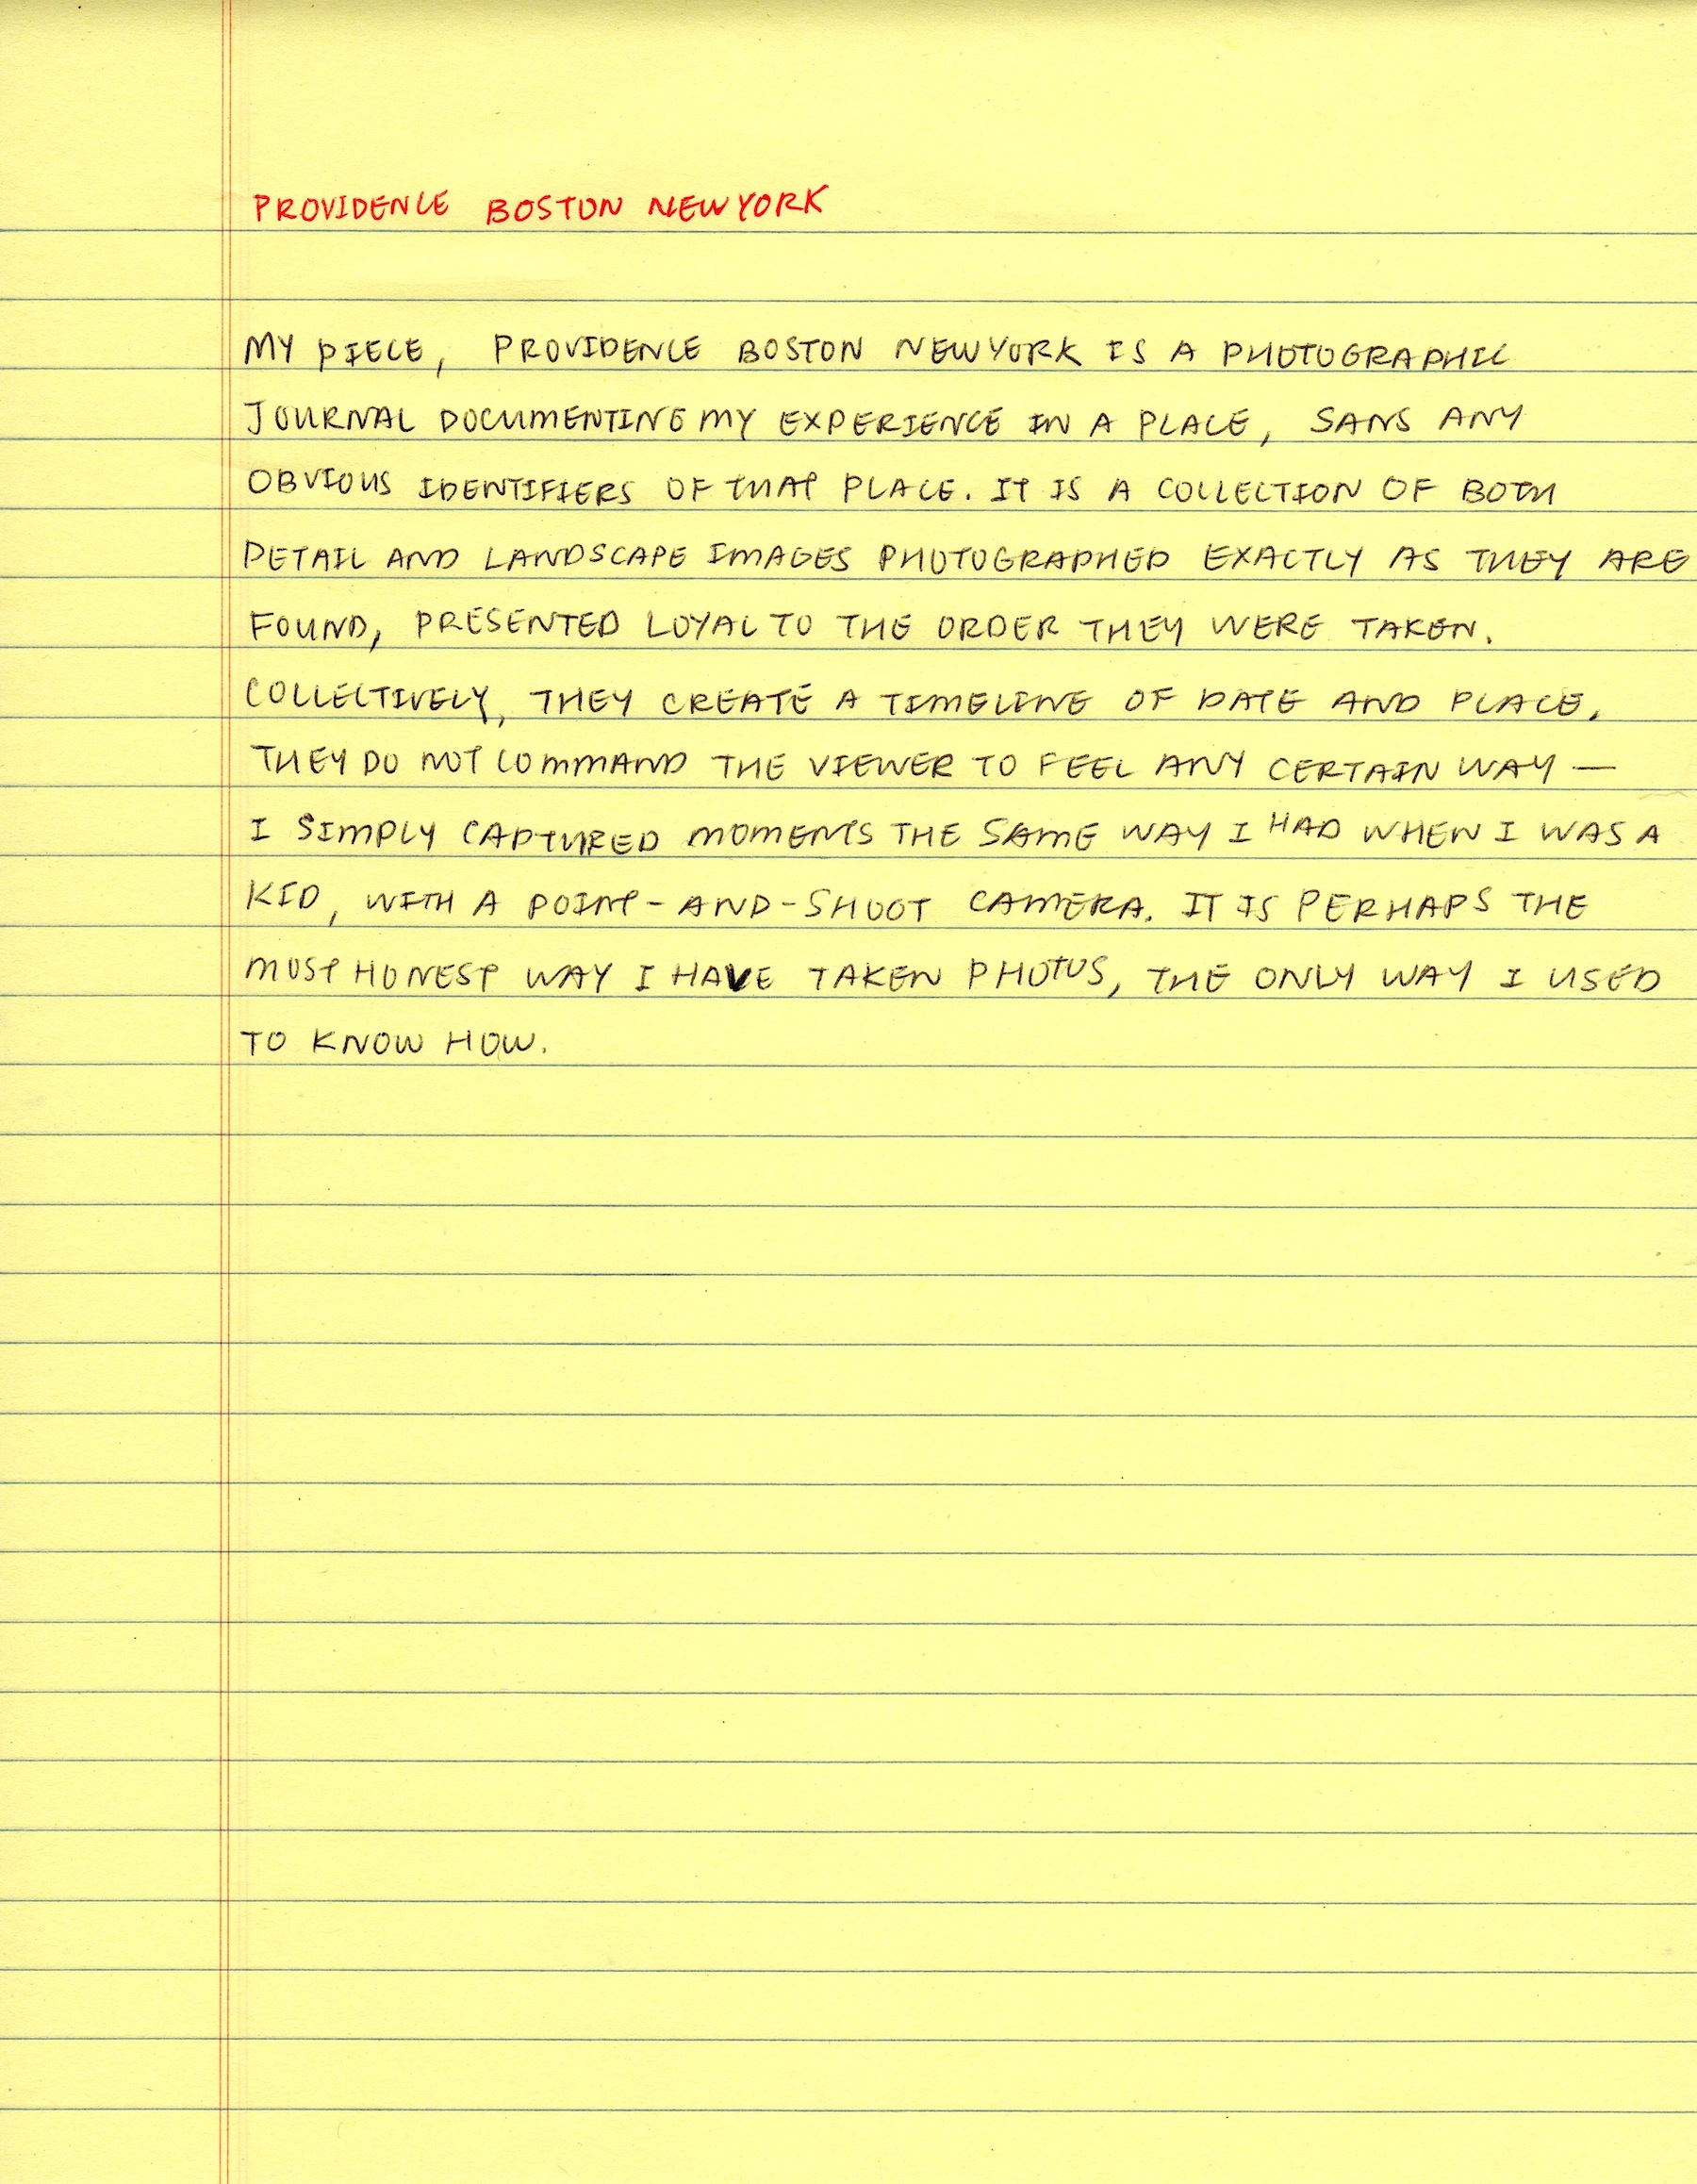 PROVIDENCE BOSTON NEW YORK
MY PIECE, PROVIDENCE BOSTON NEW YORK IS A PHOTOGRAPHIC
JOURNAL DOCUMENTING MY EXPERIENCE IN A PLACE, SANS ANY
OBVIOUS IDENTIFIERS OF THAT PLACE. IT IS A COLLECTION OF BOTH
DETAIL AND LANDSCAPE IMAGES PHOTOGRAPHED EXACTLY AS THEY ARE
FOUND, PRESENTED LOYAL TO THE ORDER THEY WERE TAKEN.
COLLECTIVELY, THEY CREATE A TIMELINE OF DATE AND PLACE.
THEY DO NOT COMMAND THE VIEWER TO FEEL ANY CERTAIN WAY —
I SIMPLY CAPTURED MOMENTS THE SAME WAY I HAD WHEN I WAS A
KID, WITH A POINT-AND-SHOOT CAMERA. IT IS PERHAPS THE
MOST HONEST WAY I HAVE TAKEN PHOTOS, THE ONLY WAY I USED
TO KNOW HOW.